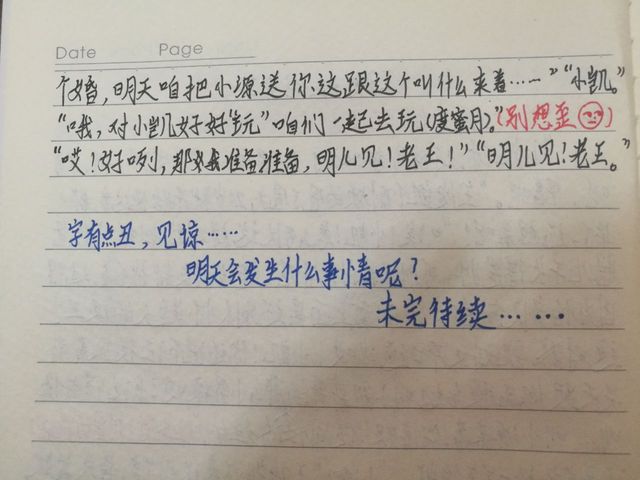 Date Page
个婚，明天咱把小源送你这跟这个叫什么来着……”“小凯。”
“哦，对小凯好好‘玩’咱们一起去玩(度蜜月)。”(别想歪)
“哎！好咧，那我准备准备，明儿见！老王！”“明儿见！老王。”
字有点丑，见惊……
明天会发生什么事情呢？
未完待续……